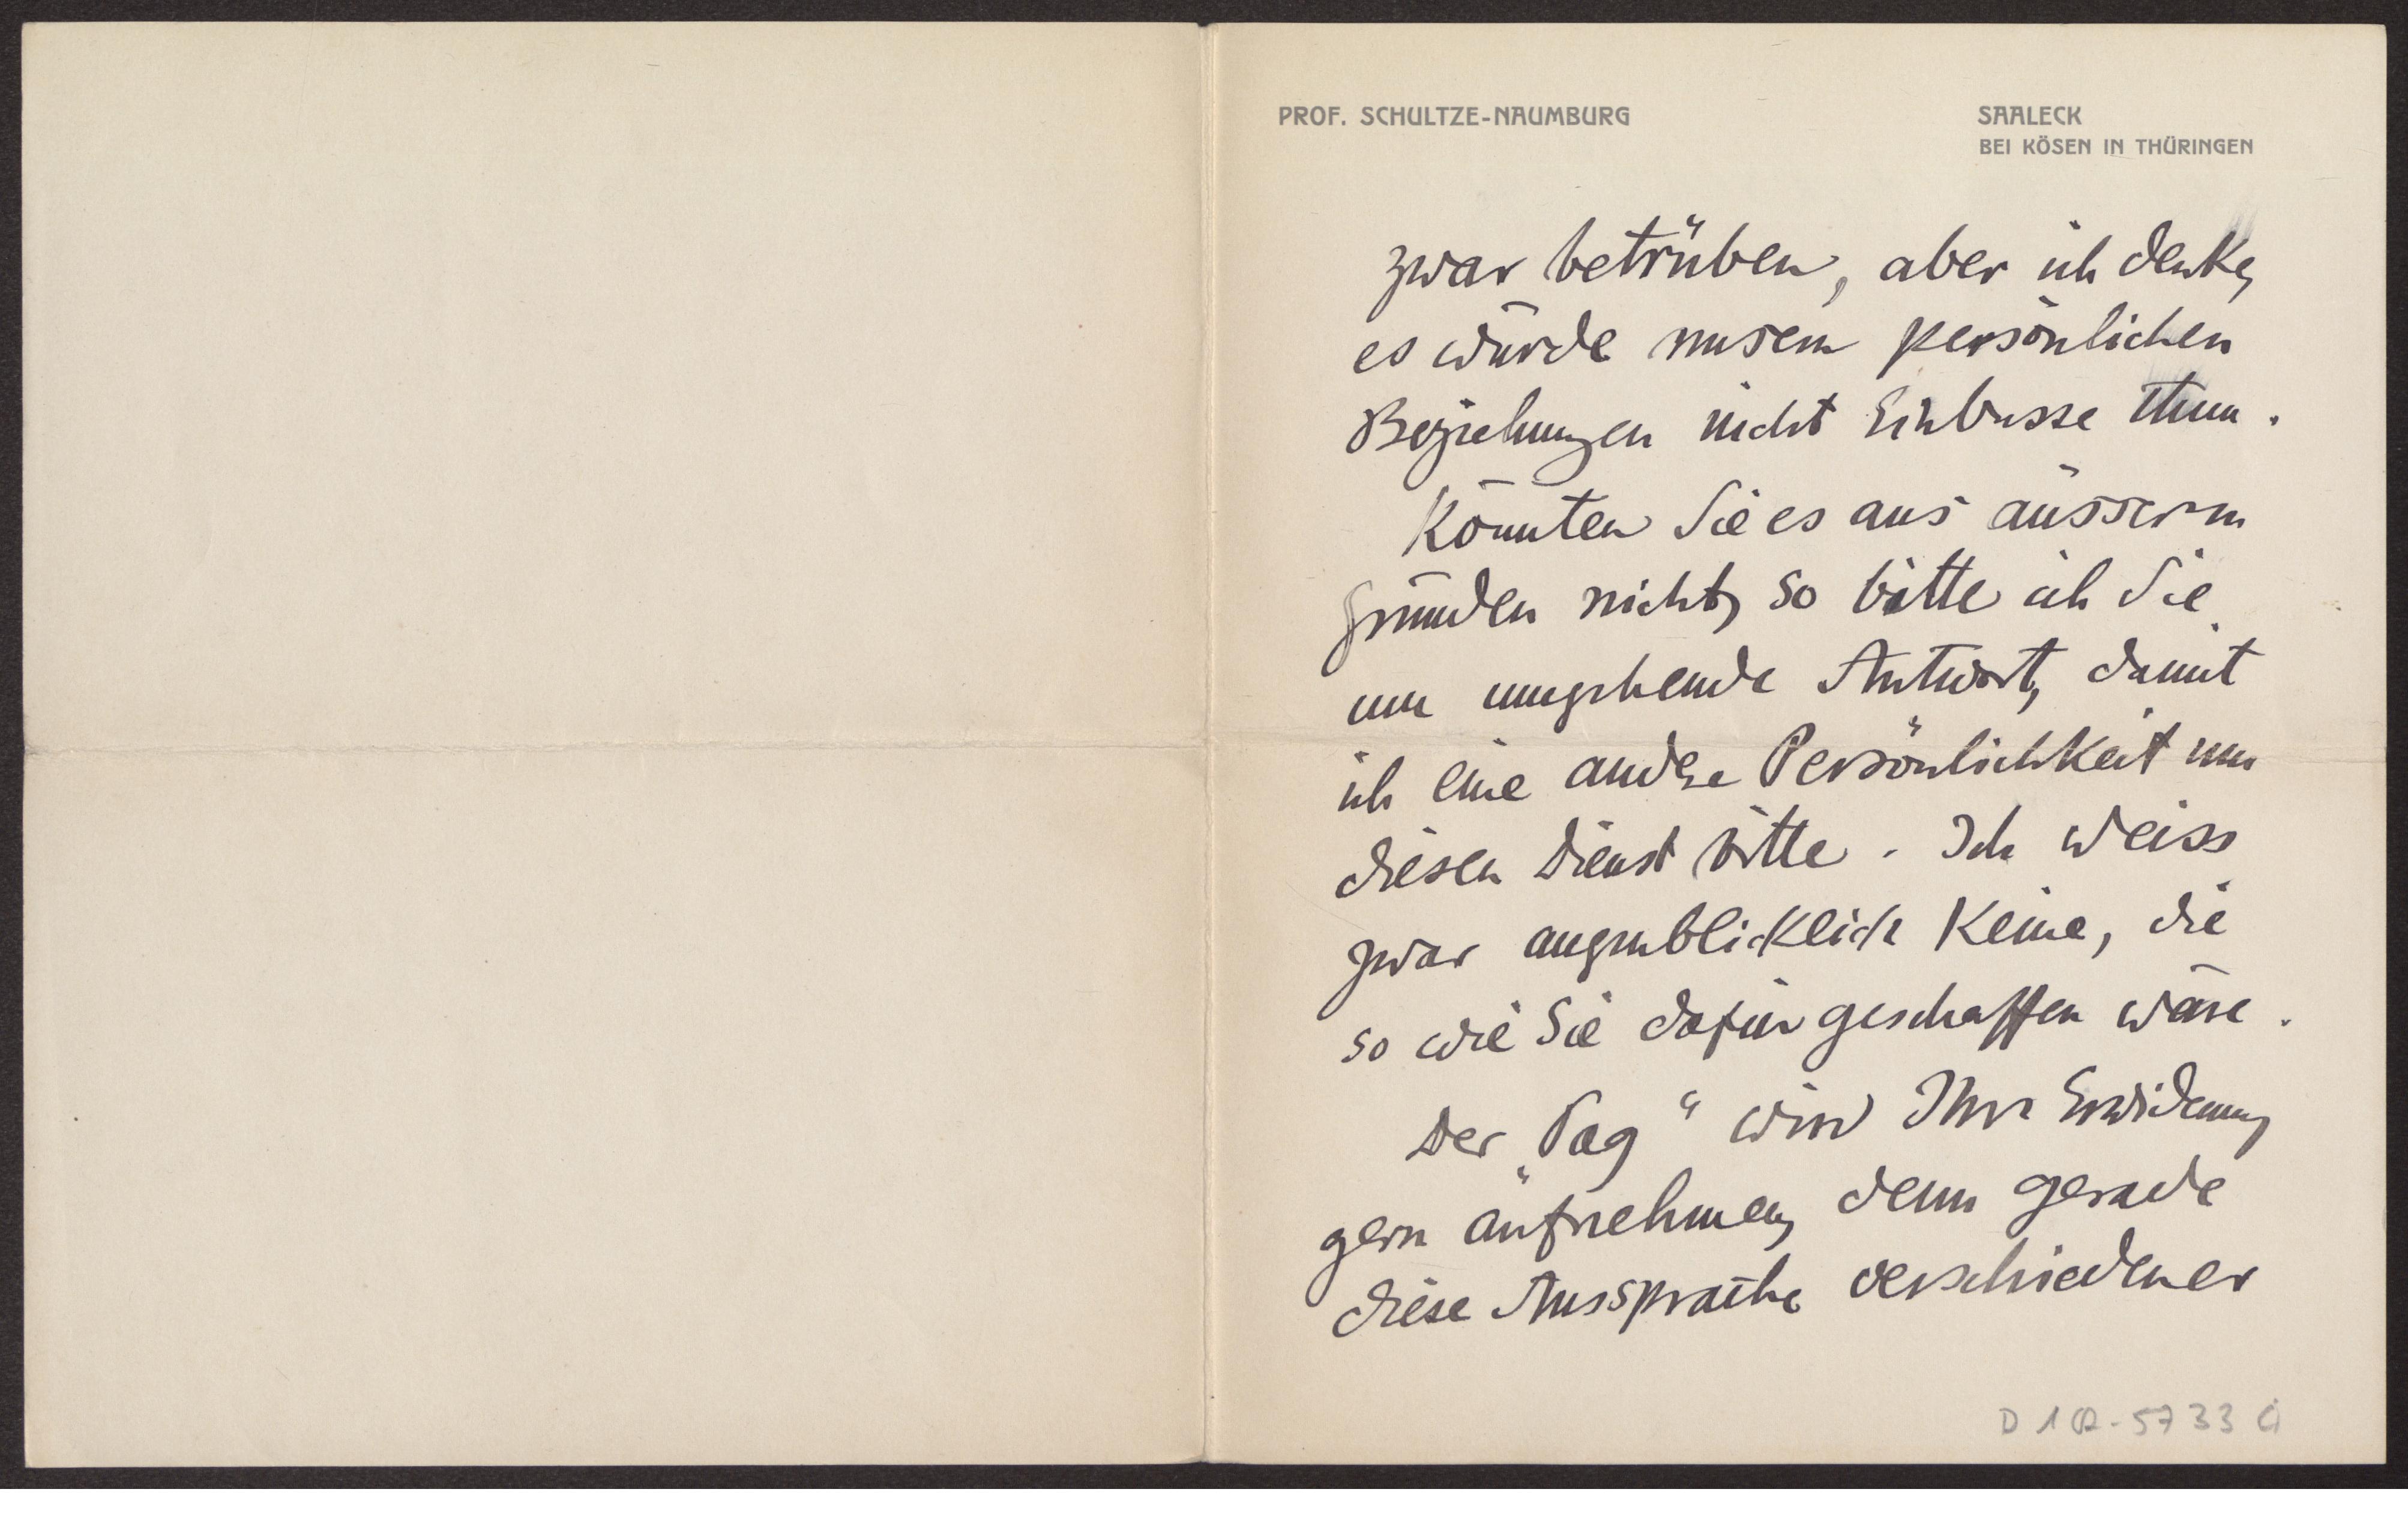 PROF. SCHULTZE-NAUMBURG
SAALECK
BEI KÖSEN IN THÜRINGEN
zwar betrüben, aber ich denke,
es würde unsern persönlichen
Beziehungen nicht Einbusse thun.
Könnten Sie es aus äussern
Gründen nicht, so bitte ich Sie
um umgehende Antwort, damit
ich eine andre Persönlichkeit um
diesen Dienst bitte. Ich weiss
zwar augenblicklich Keine, die
so wie Sie dafür geschaffen wäre.
Der „Tag“ wird Ihre Erwiderung
gern aufnehmen, denn gerade
diese Aussprache verschiedener